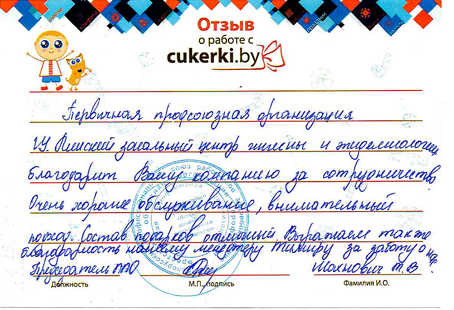 Отзыв
о работе с
cukerki.by
Первичная профсоюзная организация
ГУ. Пинский зональный центр гигиены и эпидемиологии
благодарит Вашу компанию за сотрудничество
Очень хорошее обслуживание, внимательный
подход. Состав подарков отличный Выражаем также
благодарность вашему менеджеру Тимуру за заботу о нас.
Председатель ППО Мохнович Т.В
Должность М.П., подпись Фамилия И.О.